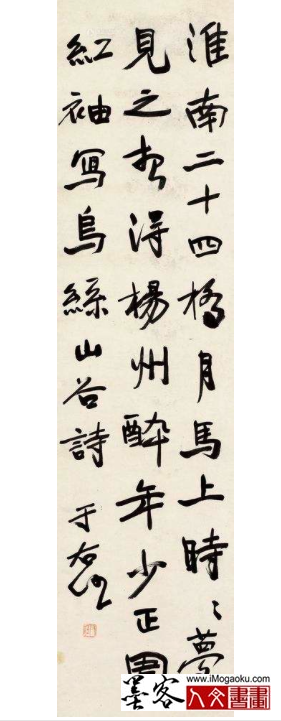 淮南二十四橋月馬上時〻夢
見之想得楊州醉年少正圍
紅袖寫烏絲山谷詩
于右任
www.iMogaoku.com
墨客
人文書畫